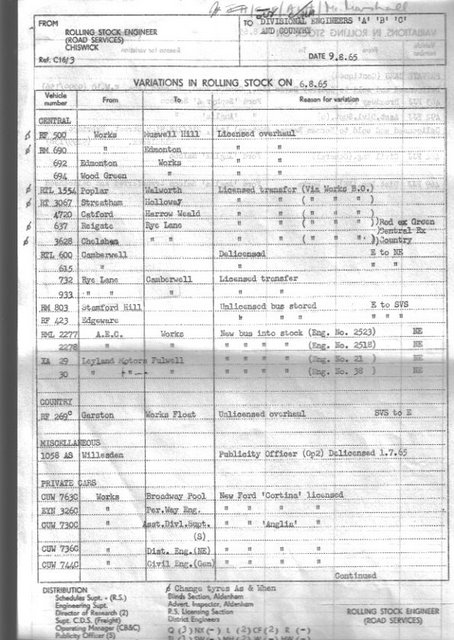 FROM
ROLLING STOCK ENGINEER
(ROAD SERVICES)
CHISWICK
Ref: C16/3
TO
DIVISIONAL ENGINEERS 'A' 'B' 'C'
AND COUNTRY
DATE 9.8.65
VARIATIONS IN ROLLING STOCK ON 6.8.65
Vehicle number From To Reason for variation
CENTRAL
ø RF 500 Works Muswell Hill Licensed overhaul
ø RM 690 " Edmonton " "
692 Edmonton Works " "
694 Wood Green " " "
ø RTL 1554 Poplar Walworth Licensed transfer (Via Works B.O.)
ø RT 3067 Streatham Holloway " " ( " " " )
4720 Catford Harrow Weald " " ( " " " )
ø 637 Reigate Rye Lane " " ( " " " ))Red ex Green
)Central Ex
ø 3628 Chelsham " " " " ( " " " ))Country
RTL 600 Camberwell Delicensed E to NE
615 " " " " "
732 Rye Lane Camberwell Licensed transfer
933 " " " " "
RM 803 Stamford Hill Unlicensed bus stored E to SVS
RF 423 Edgware " " " " " "
RML 2277 A.E.C. Works New bus into stock (Eng. No. 2523) NE
2278 " " " " " " (Eng. No. 2518) NE
XA 29 Leyland Motors Fulwell " " " " (Eng. No. 21 ) NE
30 " " " " " " " (Eng. No. 38 ) NE
COUNTRY
RF 269 Garston Works Float Unlicensed overhaul SVS to E
MISCELLANEOUS
1058 AS Willesden Publicity Officer (Op2) Delicensed 1.7.65
PRIVATE CARS
CUW 763C Works Broadway Pool New Ford 'Cortina' licensed
EYN 326C " Per.Way Eng. " " " "
CUW 730C " Asst.Divl.Supt. " " 'Anglia' "
(S)
CUW 736C " Dist. Eng.(NE) " " " "
CUW 744C " Civil Eng.(Gen) " " " "
Continued
DISTRIBUTION
ø Change tyres As & When
Schedules Supt. - (R.S.)
Engineering Supt.
Director of Research (2)
Supt. C.D.S. (Freight)
Operating Manager (CB&C)
Publicity Officer (S)
Blinds Section, Aldenham
Advert. Inspector, Aldenham
R.S. Licensing Section
District Engineers
ROLLING STOCK ENGINEER
(ROAD SERVICES)